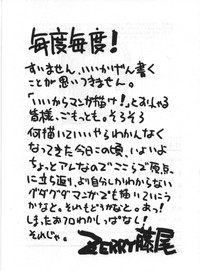 毎度毎度!
すいません、いいかげん書く
ことが思いつきません。
「いいからマンガ描け!」とおっしゃる
皆様、ごもっとも。そろそろ
何描いていいやらわかんなく
なってきた今日この頃、いよいよ
ちょっとアレなのでここらで原点
に立ち返り、より自分しかわからない
グダグダマンガでも描いていこ
うかなと。それもどうかなと。あっ!
しまったおフロわかしっぱなし!
それじゃ。
ZERRY藤尾